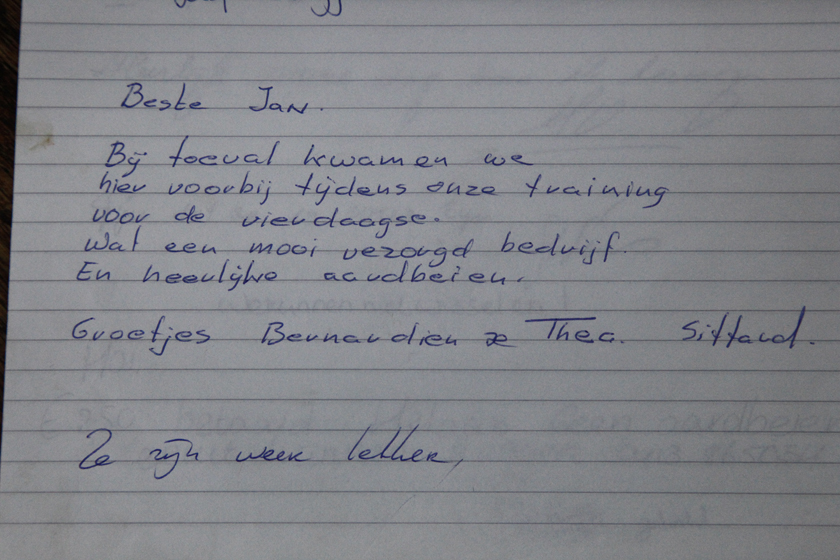 Beste Jan.
Bij toeval kwamen we
hier voorbij tijdens onze training
voor de vierdaagse.
Wat een mooi vezorgd bedrijf.
En heerlijke aardbeien.
Groetjes Bernardien & Thea. Sittard.
Ze zijn weer lekker,